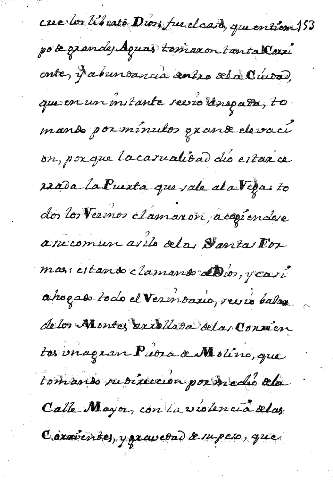 que los libertó Dios, fue el caso, que en tiem 153
po de grandes Aguas tomaron tanta Corri
ente, y abundancia dentro de la Ciudad,
que en un instante se vio anegada, to
mando por minutos grande elevaci
on, porque la casualidad dio estar ce
rrada la Puerta que sale a la Vega; to
dos los Vecinos clamaron, acogiendose
a su comun asilo de las Santas For
mas; estando clamando a Dios, y casi
ahogado todo el Vecindario, se vio bajar
de los Montes arrollada de las Corrien
tes una gran Piedra de Molino, que
tomando su direccion por medio de la
Calle Mayor, con la violencia de las
Corrientes, y gravedad de su peso, que